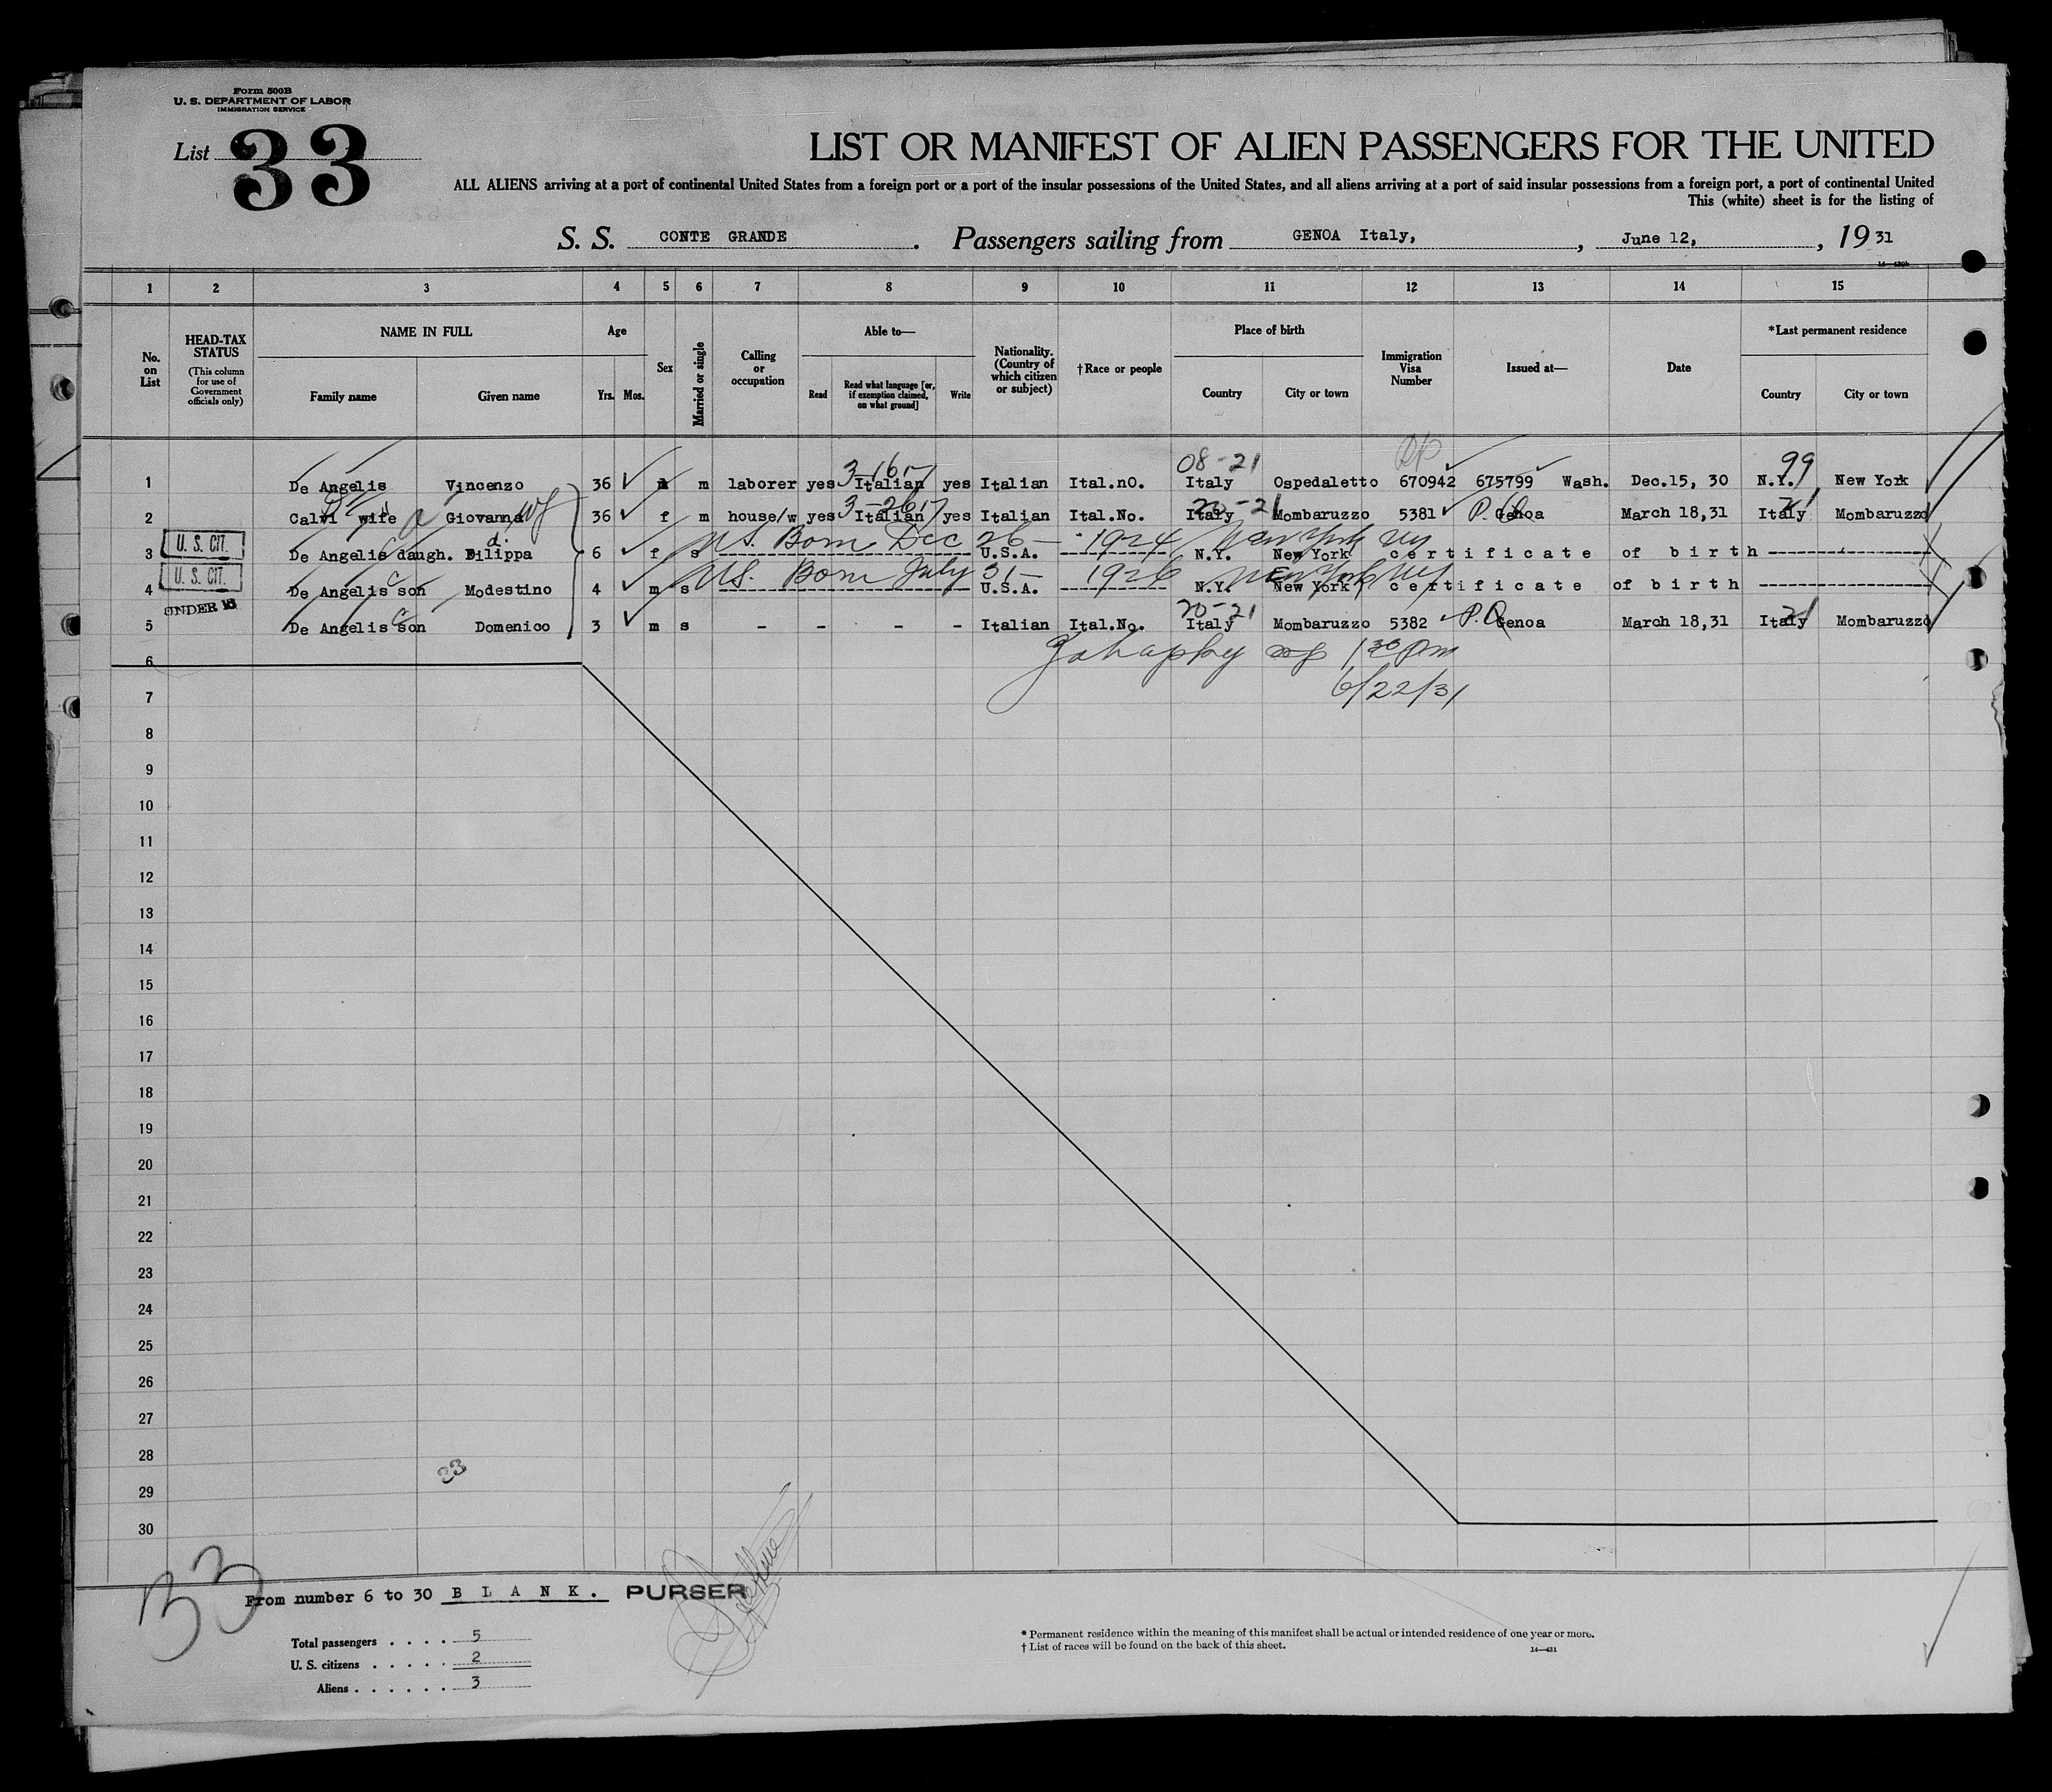 Form 500B
U. S. DEPARTMENT OF LABOR
IMMIGRATION SERVICE
List 33
LIST OR MANIFEST OF ALIEN PASSENGERS FOR THE UNITED
ALL ALIENS arriving at a port of continental United States from a foreign port or a port of the insular possessions of the United States, and all aliens arriving at a port of said insular possessions from a foreign port, a port of continental United
This (white) sheet is for the listing of
S. S. CONTE GRANDE . Passengers sailing from GENOA Italy, , June 12, , 19 31
1 2 3 4 5 6 7 8 9 10 11 12 13 14 15
No. on List
HEAD-TAX STATUS (This column for use of Government officials only)
NAME IN FULL
Family name Given name
Age
Yrs. Mos.
Sex
Married or single
Calling or occupation
Able to—
Read Read what language [or, if exemption claimed, on what ground] Write
Nationality. (Country of which citizen or subject)
† Race or people
Place of birth
Country City or town
Immigration Visa Number
Issued at—
Date
*Last permanent residence
Country City or town
3-16 08-21 99
1 De Angelis Vincenzo 36 m laborer yes Italian yes Italian Ital.nO. Italy Ospedaletto 670942 675799 Wash. Dec.15, 30 N.Y. New York
2 Calvi wife Giovanna wf 36 f m house/w yes Italian yes Italian Ital.No. Italy Mombaruzzo 5381 Genoa March 18,31 Italy Mombaruzzo
U. S. CIT.
US. Born Dec 26 - 1924 New York Ny
3 De Angelis daugh. Filippa 6 f s U.S.A. N.Y. New York certificate of birth
U. S. CIT.
US. Born July 31 - 1926 New York Ny
4 De Angelis son Modestino 4 m s U.S.A. N.Y. New York certificate of birth
UNDER 16
20-21
5 De Angelis son Domenico 3 m s - - - - Italian Ital.No. Italy Mombaruzzo 5382 Genoa March 18,31 Italy Mombaruzzo
6
1 30 pm
7
6/22/31
8
9
10
11
12
13
14
15
16
17
18
19
20
21
22
23
24
25
26
27
28
33
29
30
33
From number 6 to 30 B L A N K. PURSER
Total passengers . . . . 5
U. S. citizens . . . . . 2
Aliens . . . . . . 3
* Permanent residence within the meaning of this manifest shall be actual or intended residence of one year or more.
† List of races will be found on the back of this sheet.
14—431